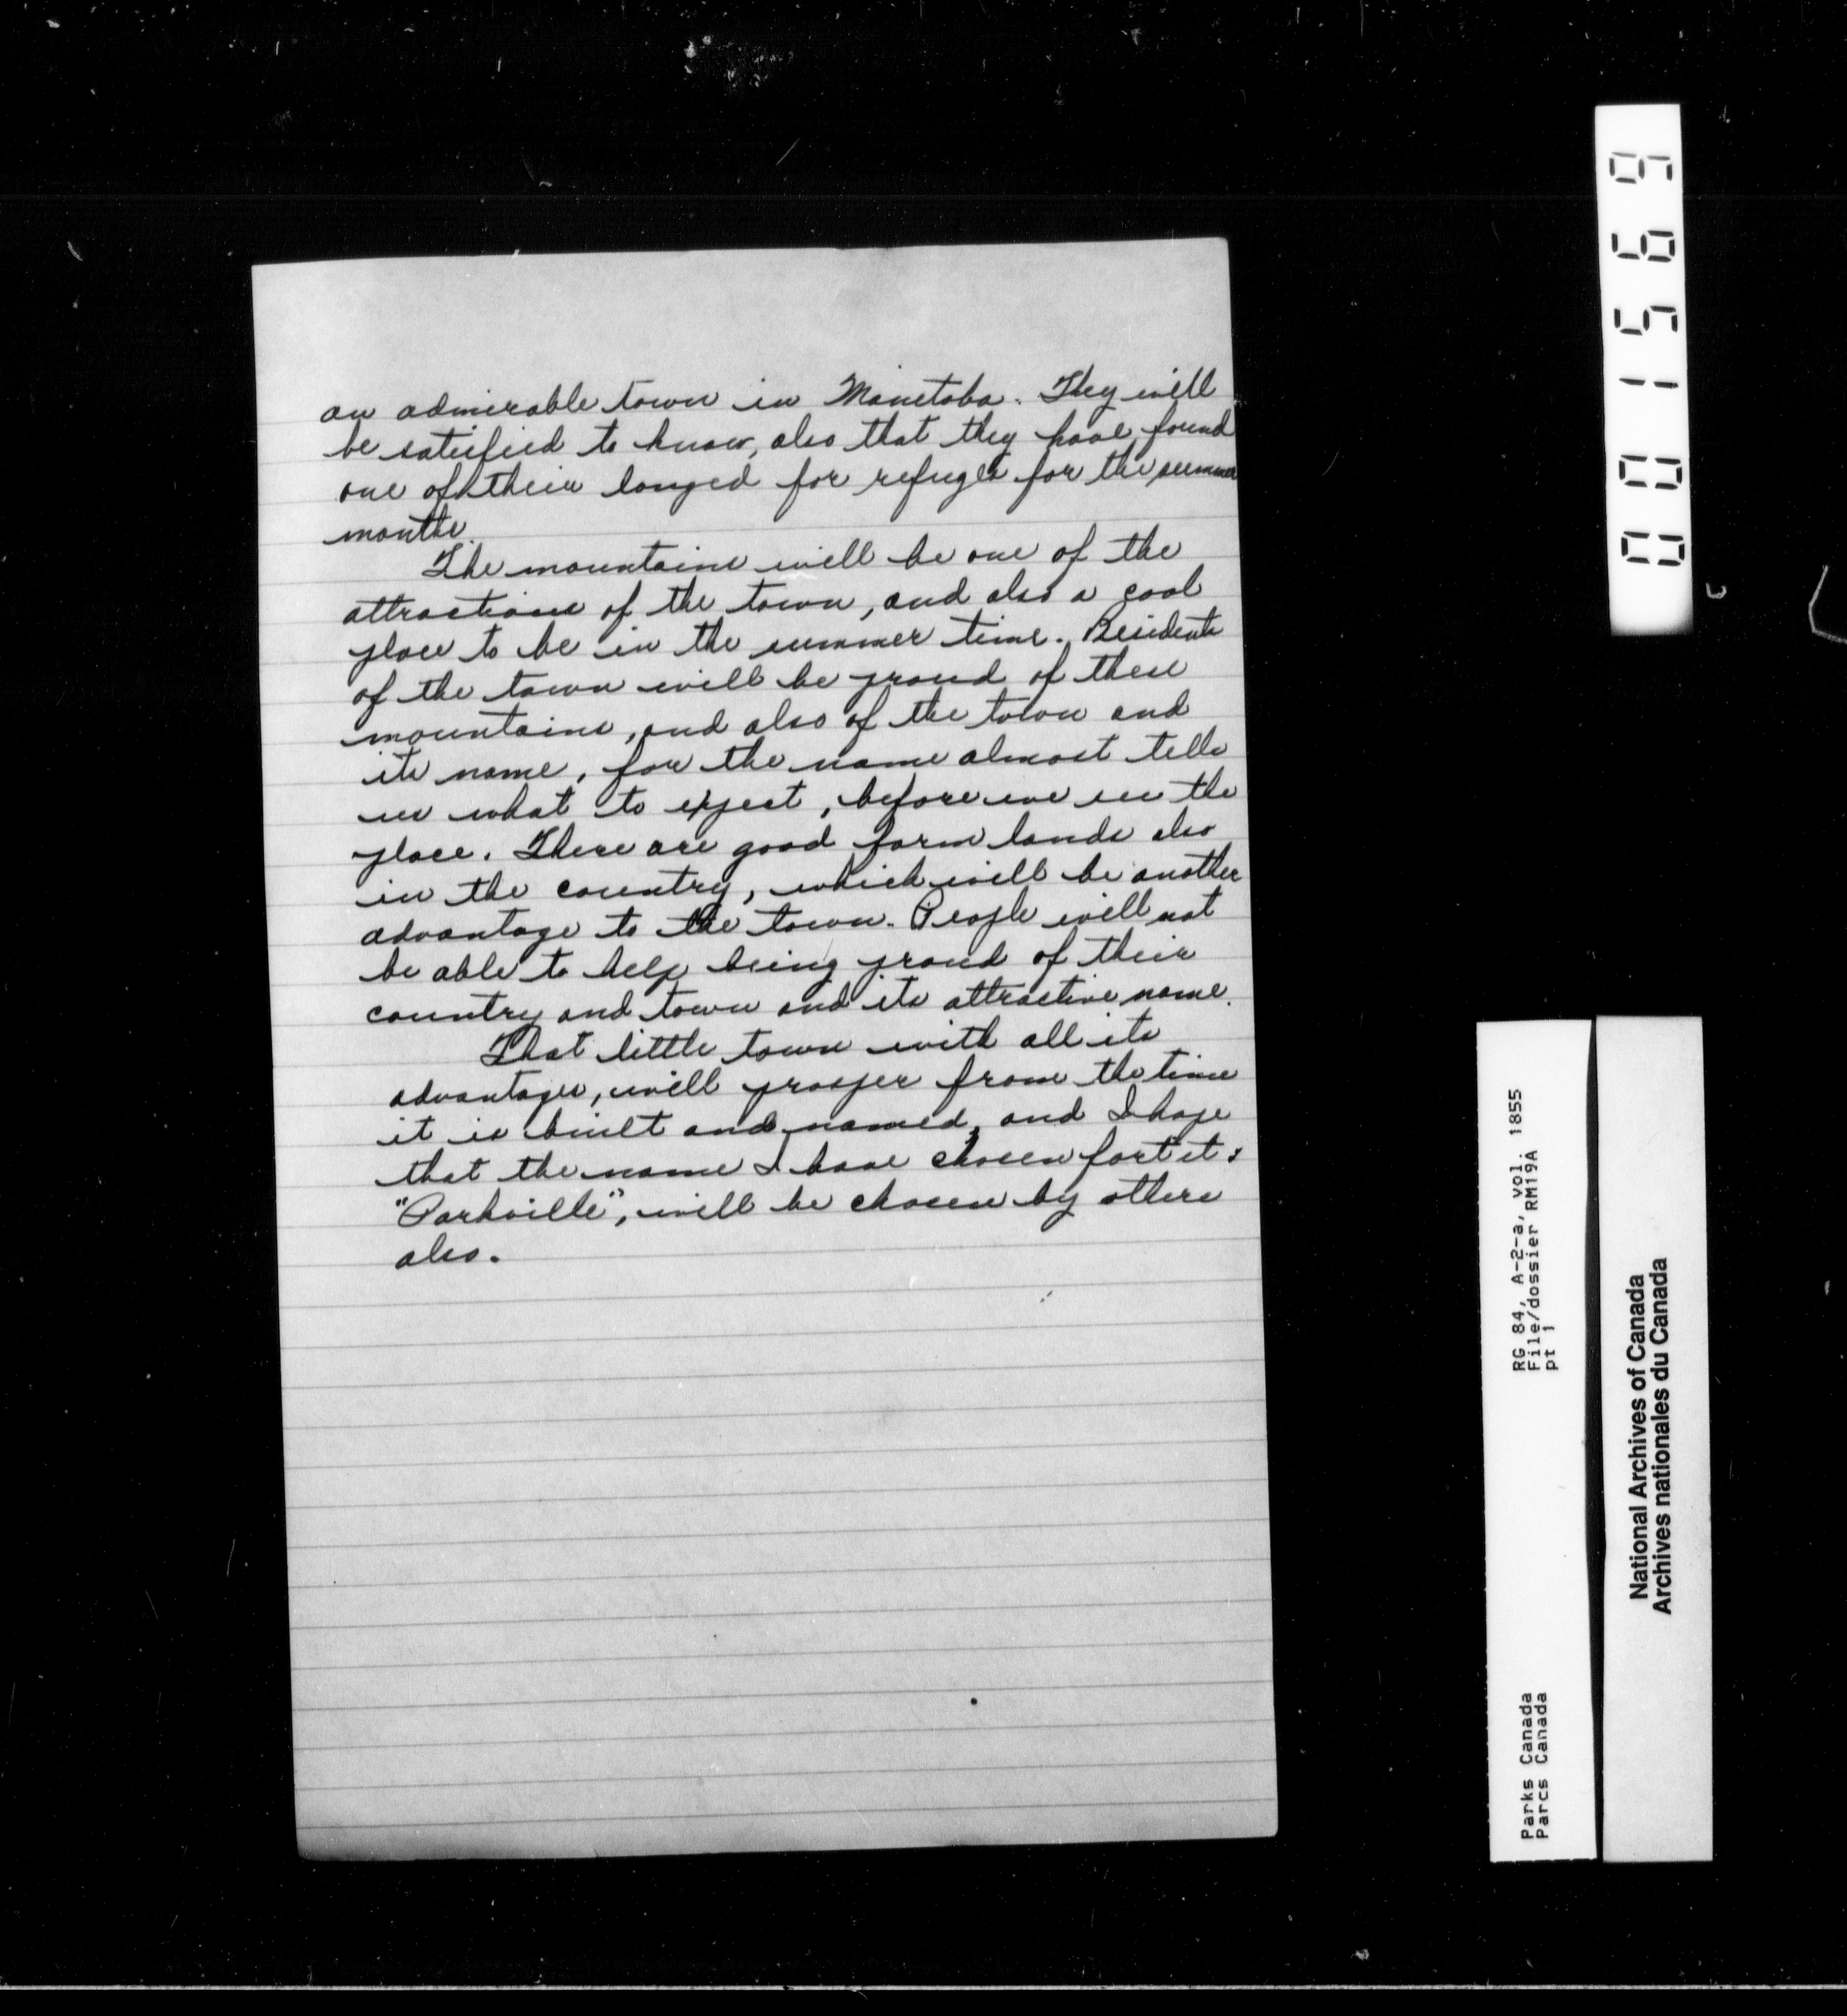 an admirable town in Manitoba. They will
be satisfied to know, also that they have found
one of their longed for refuges for the summer
months.
The mountains will be one of the
attractions of the town, and also a cool
place to be in the summer time. Residents
of the town will be proud of these
mountains, and also of the town and
its name, for the name almost tells
us what to expect, before we see the
place. There are good farm lands also
in the country, which will be another
advantage to the town. People will not
be able to help being proud of their
country and town and its attractive name.
That little town with all its
advantages, will prosper from the time
it is built and named, and I hope
that the name I have chosen for it:
"Parkville", will be chosen by others
also.
001569
3
RG 84, A-2-a, vol. 1855
File/dossier RM19A
pt 1
Parks Canada
Parcs Canada
National Archives of Canada
Archives nationales du Canada